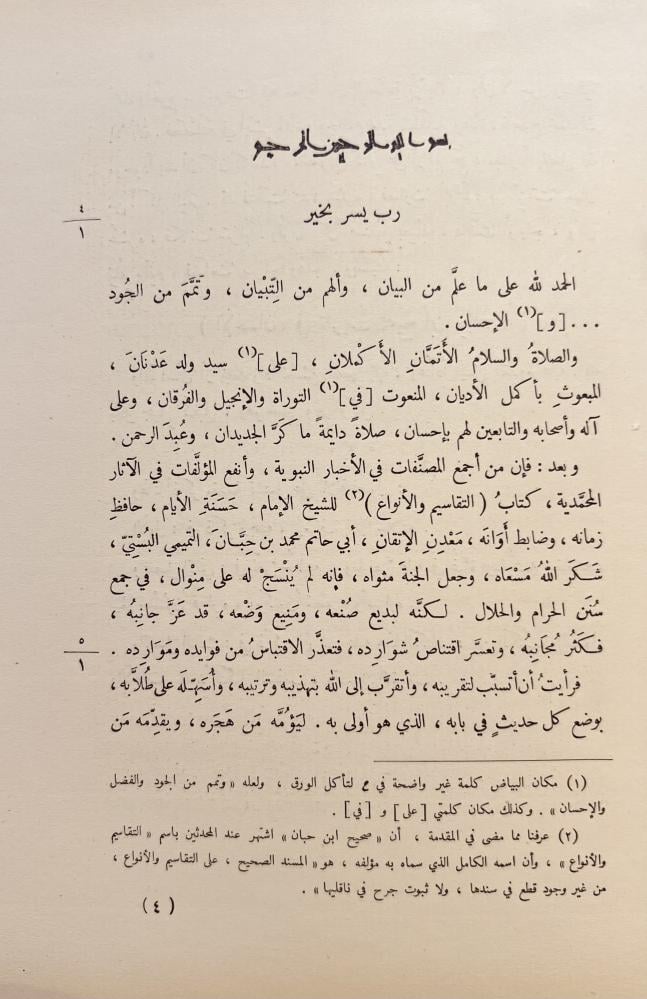 بسم الله الرحمن الرحيم
رب يسر بخير
٤
١
الحمد لله على ما علَّم من البيان ، وألهم من التِّبْيان ، وتَمَّمَ من الجُود
... [و] (١) الإحسان .
والصلاةُ والسلامُ الأَتَمَّانِ الأَكْملانِ ، [على] (١) سيد ولد عَدْنَانَ ،
المبعوثِ بأكمل الأديان ، المنعوت [في] (١) التوراة والإنجيل والفُرقان ، وعلى
آله وأصحابه والتابعين لهم بإحسان ، صلاةً دايمةً ما كَرَّ الجديدان ، وعُبِدَ الرحمن .
وبعد : فإن من أجمع المصنَّفات في الأخبار النبوية ، وأنفع المؤلَّفات في الآثار
المحمَّدية ، كتابُ ( التقاسيم والأنواع ) (٢) للشيخ الإمام ، حَسَنَةِ الأيام ، حافظِ
زمانه ، وضابط أَوَانَه ، مَعْدِنِ الإتقانِ ، أبي حاتم محمد بن حِبَّانَ ، التميمي البُسْتِيّ ،
شَكَرَ اللهُ مَسْعَاه ، وجعل الجنةَ مثواه ، فإنه لم يُنْسَجْ له على مِنْوال ، في جمع
سُنَن الحرام والحلال . لكنَّه لبديع صُنْعه ، ومَنِيع وَضْعه ، قد عَزَّ جانِبُه ،
فكَثُرَ مُجَانِبُه ، وتعسَّر اقتناصُ شوَارِده ، فتعذَّر الاقتباسُ من فوايده ومَوَارِده .
٥
١
فرأيتُ أن أتسبَّب لتقريبه ، وأتقرَّب إلى الله بتهذيبه وترتيبه ، وأُسَهِّلَه على طُلَّابه ،
بوضع كل حديثٍ في بابه ، الذي هو أولى به . ليَؤُمَّه مَن هَجَره ، ويقدِّمَه مَن
(١) مكان البياض كلمة غير واضحة في ع لتأكل الورق ، ولعله « وتمم من الجود والفضل
والإحسان » . وكذلك مكان كلمتي [على] و [في] .
(٢) عرفنا مما مضى في المقدمة ، أن « صحيح ابن حبان » اشتهر عند المحدثين باسم « التقاسيم
والأنواع » ، وأن اسمه الكامل الذي سماه به مؤلفه ، هو « المسند الصحيح ، على التقاسيم والأنواع ،
من غير وجود قطع في سندها ، ولا ثبوت جرح في ناقليها » .
(٤)